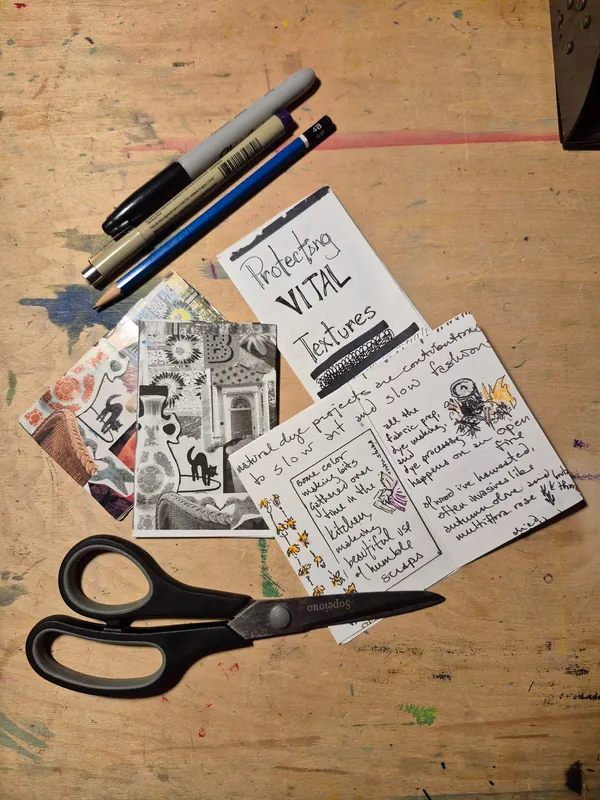 4B
Protecting
VITAL
Textures
natural dye projects are contributions
to slow art and slow fashion
some color
making bits
gathered over
time in the
kitchen,
making
beautiful use
of humble
scraps
all the
fabric prep,
dye making,
and
dye processing
happens on an open
fire
of wood i've harvested,
often invasives like
autumn olive and
multiflora rose
Sopelouo